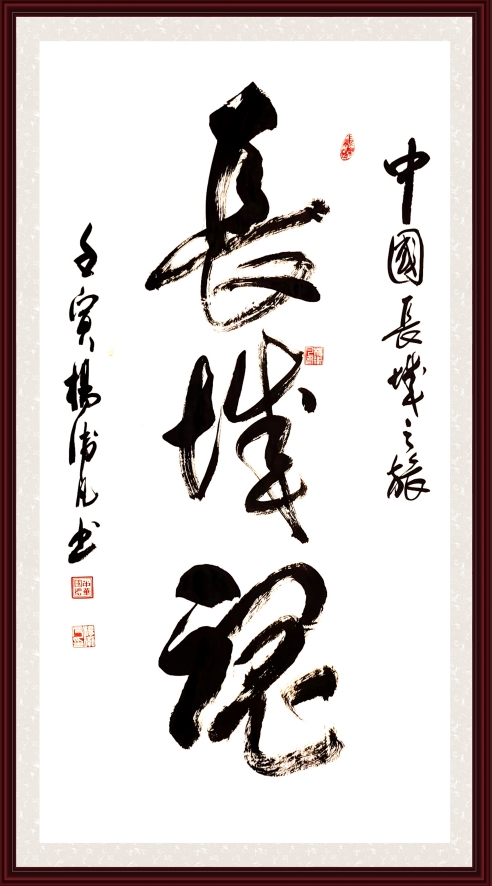 中國長城之旅
長城魂
壬寅楊清凡书